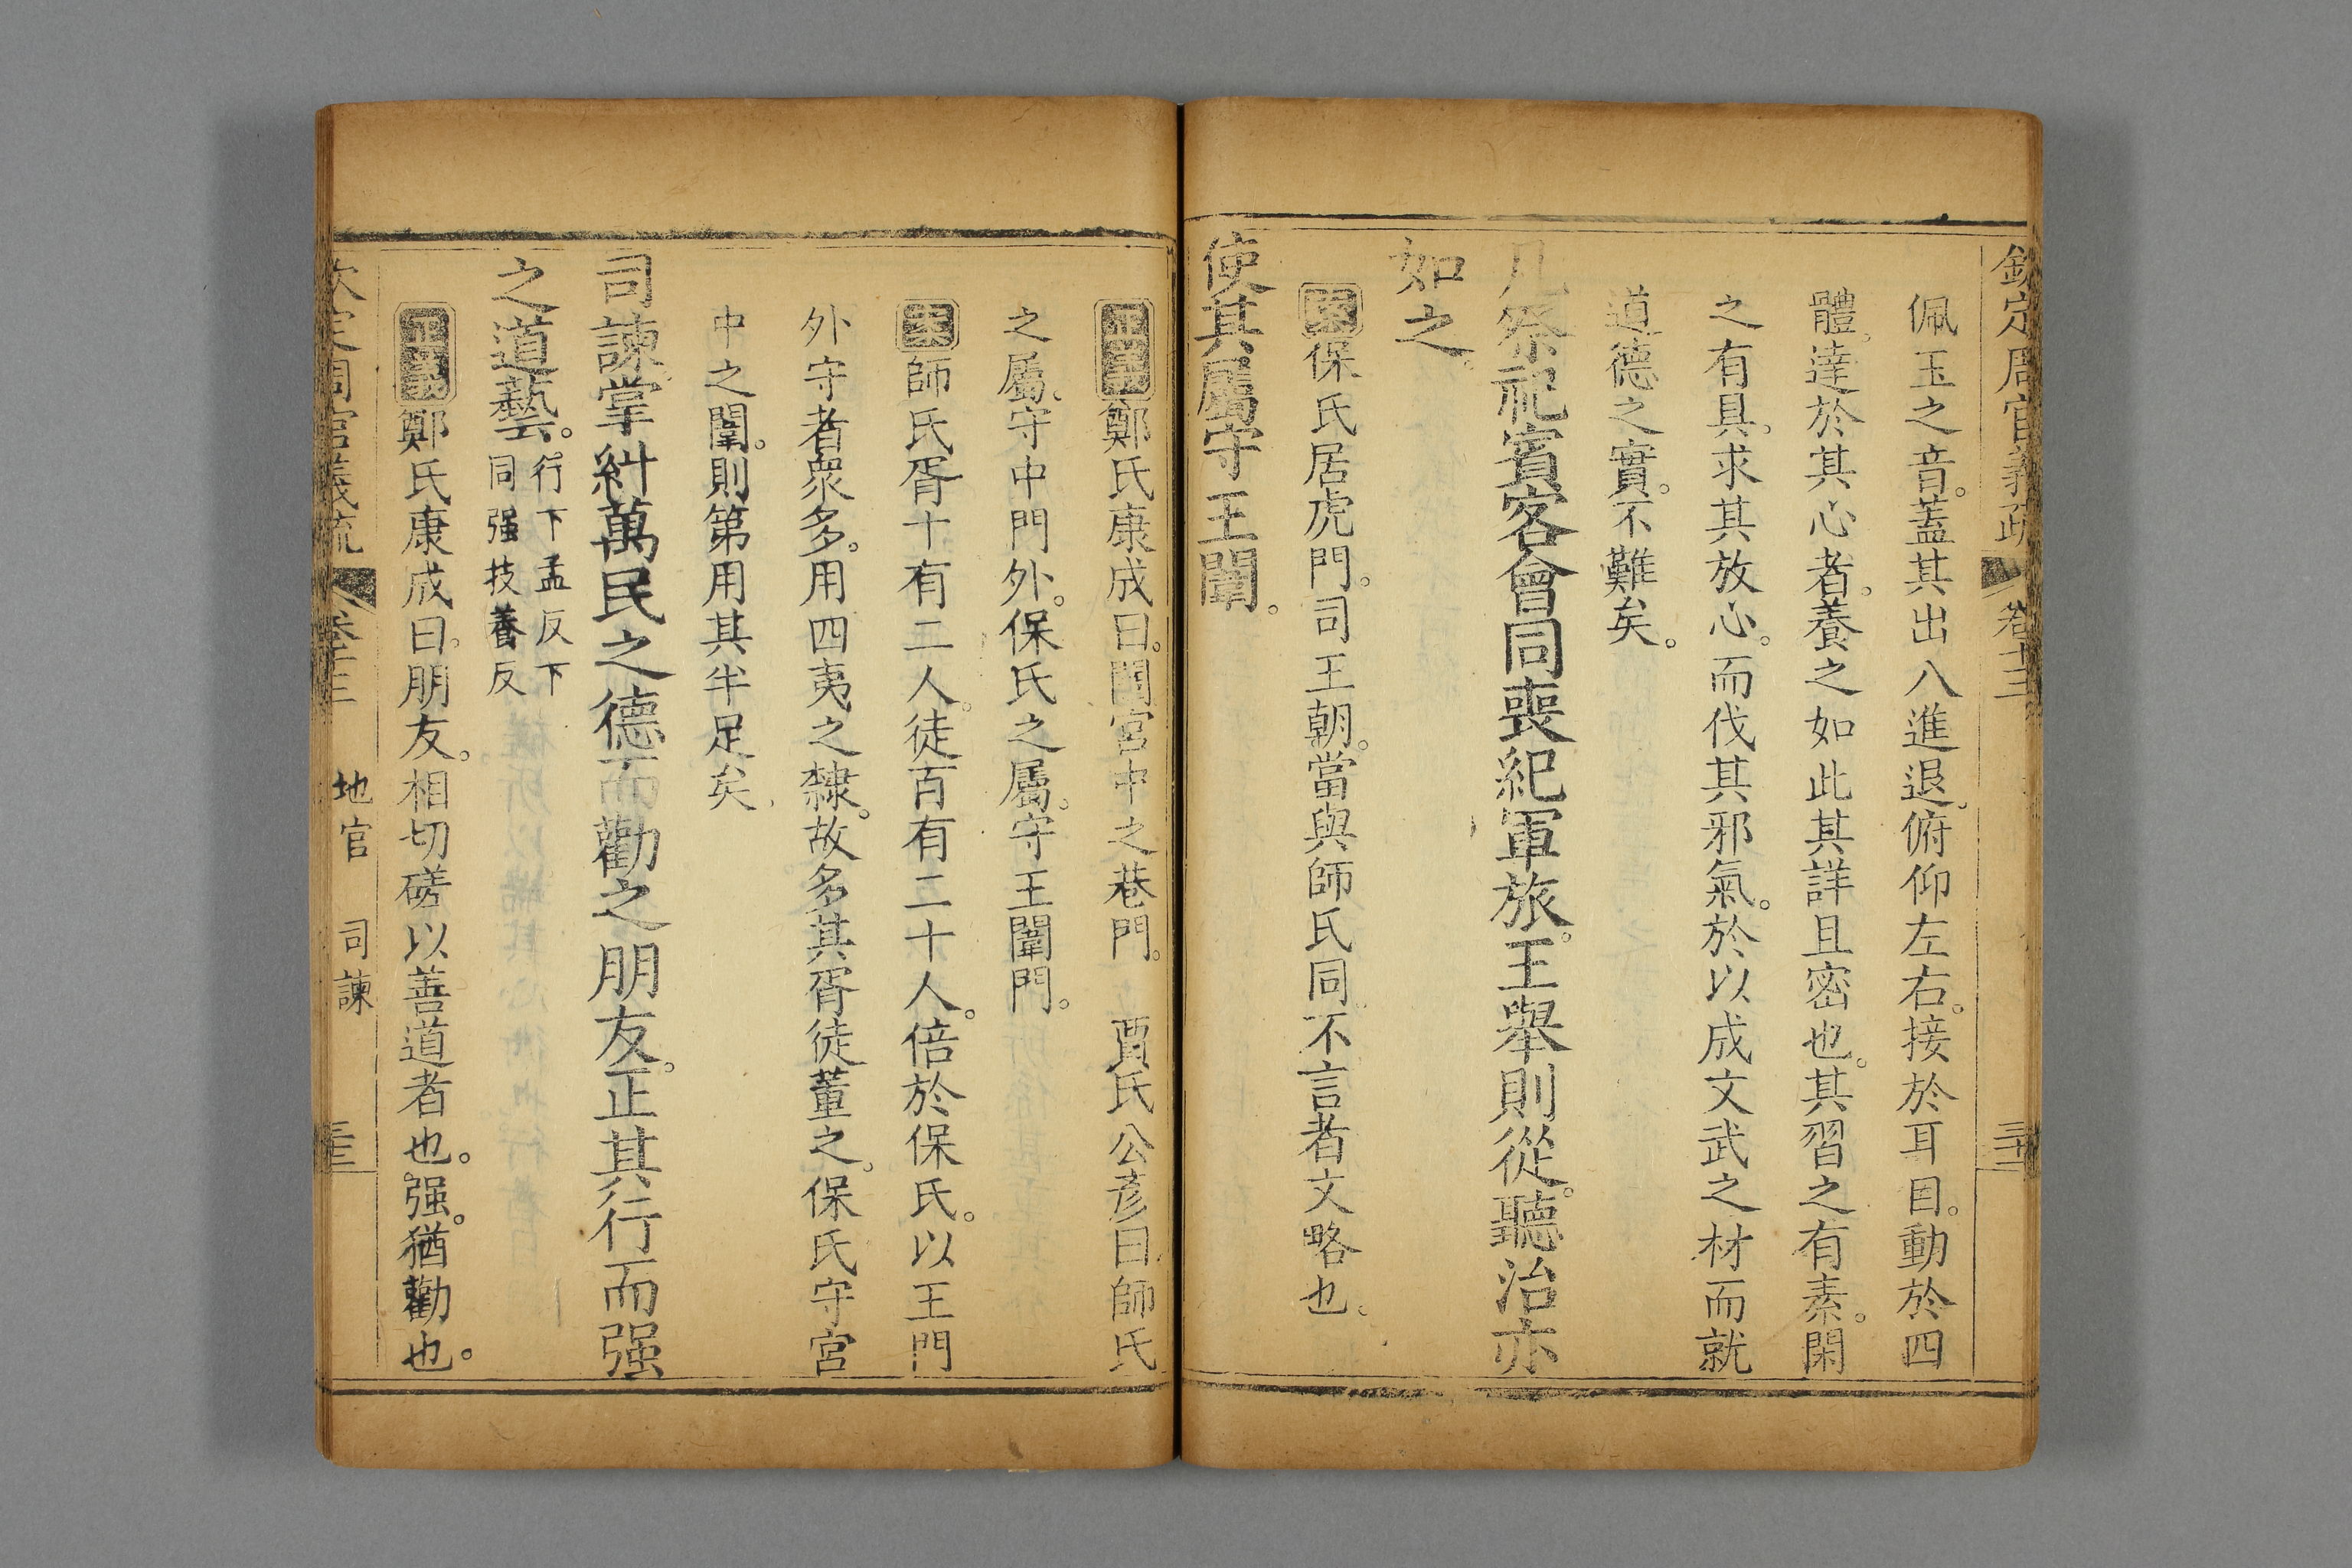 欽定周官義疏 卷十三
佩玉之音。蓋其出入進退。俯仰左右。接於耳目。動於四
體。達於其心者。養之如此其詳且密也。其習之有素。閑
之有具。求其放心。而伐其邪氣。於以成文武之材而就
道德之實。不難矣。
凡祭祀賓客會同喪紀軍旅。王舉則從。聽治亦
如之。
案保氏居虎門。司王朝。當與師氏同。不言者文略也。
使其屬守王闈。
正義鄭氏康成曰。闈宮中之巷門。 賈氏公彥曰。師氏
之屬。守中門外。保氏之屬。守王闈門。
案師氏胥十有二人。徒百有二十人。倍於保氏。以王門
外守者衆多。用四夷之隸。故多其胥徒董之。保氏守宮
中之闈。則第用其半足矣。
司諫掌糾萬民之德而勸之朋友。正其行而强
之道藝。行下孟反下
同强技養反
正義鄭氏康成曰。朋友。相切磋以善道者也。强。猶勸也。
欽定周官義疏 卷十三 地官 司諫